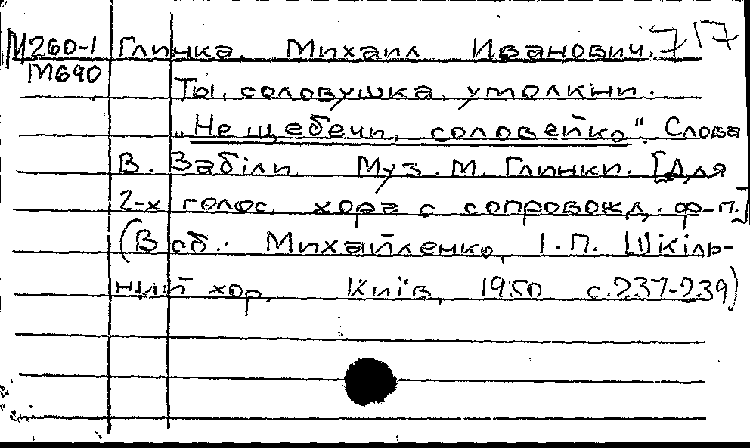 М260-1 Глинка, Михаил Иванович. 717
М690
Ты, соловушка, умолкни.
"Не щебечи, соловейко". Слова
В. Забіли. Муз. М. Глинки. [Для
2-х голос. хора с сопровожд. ф-п.]
(В сб.: Михайленко, І.П. Шкіль-
ний хор. Київ, 1950 с.237-239)